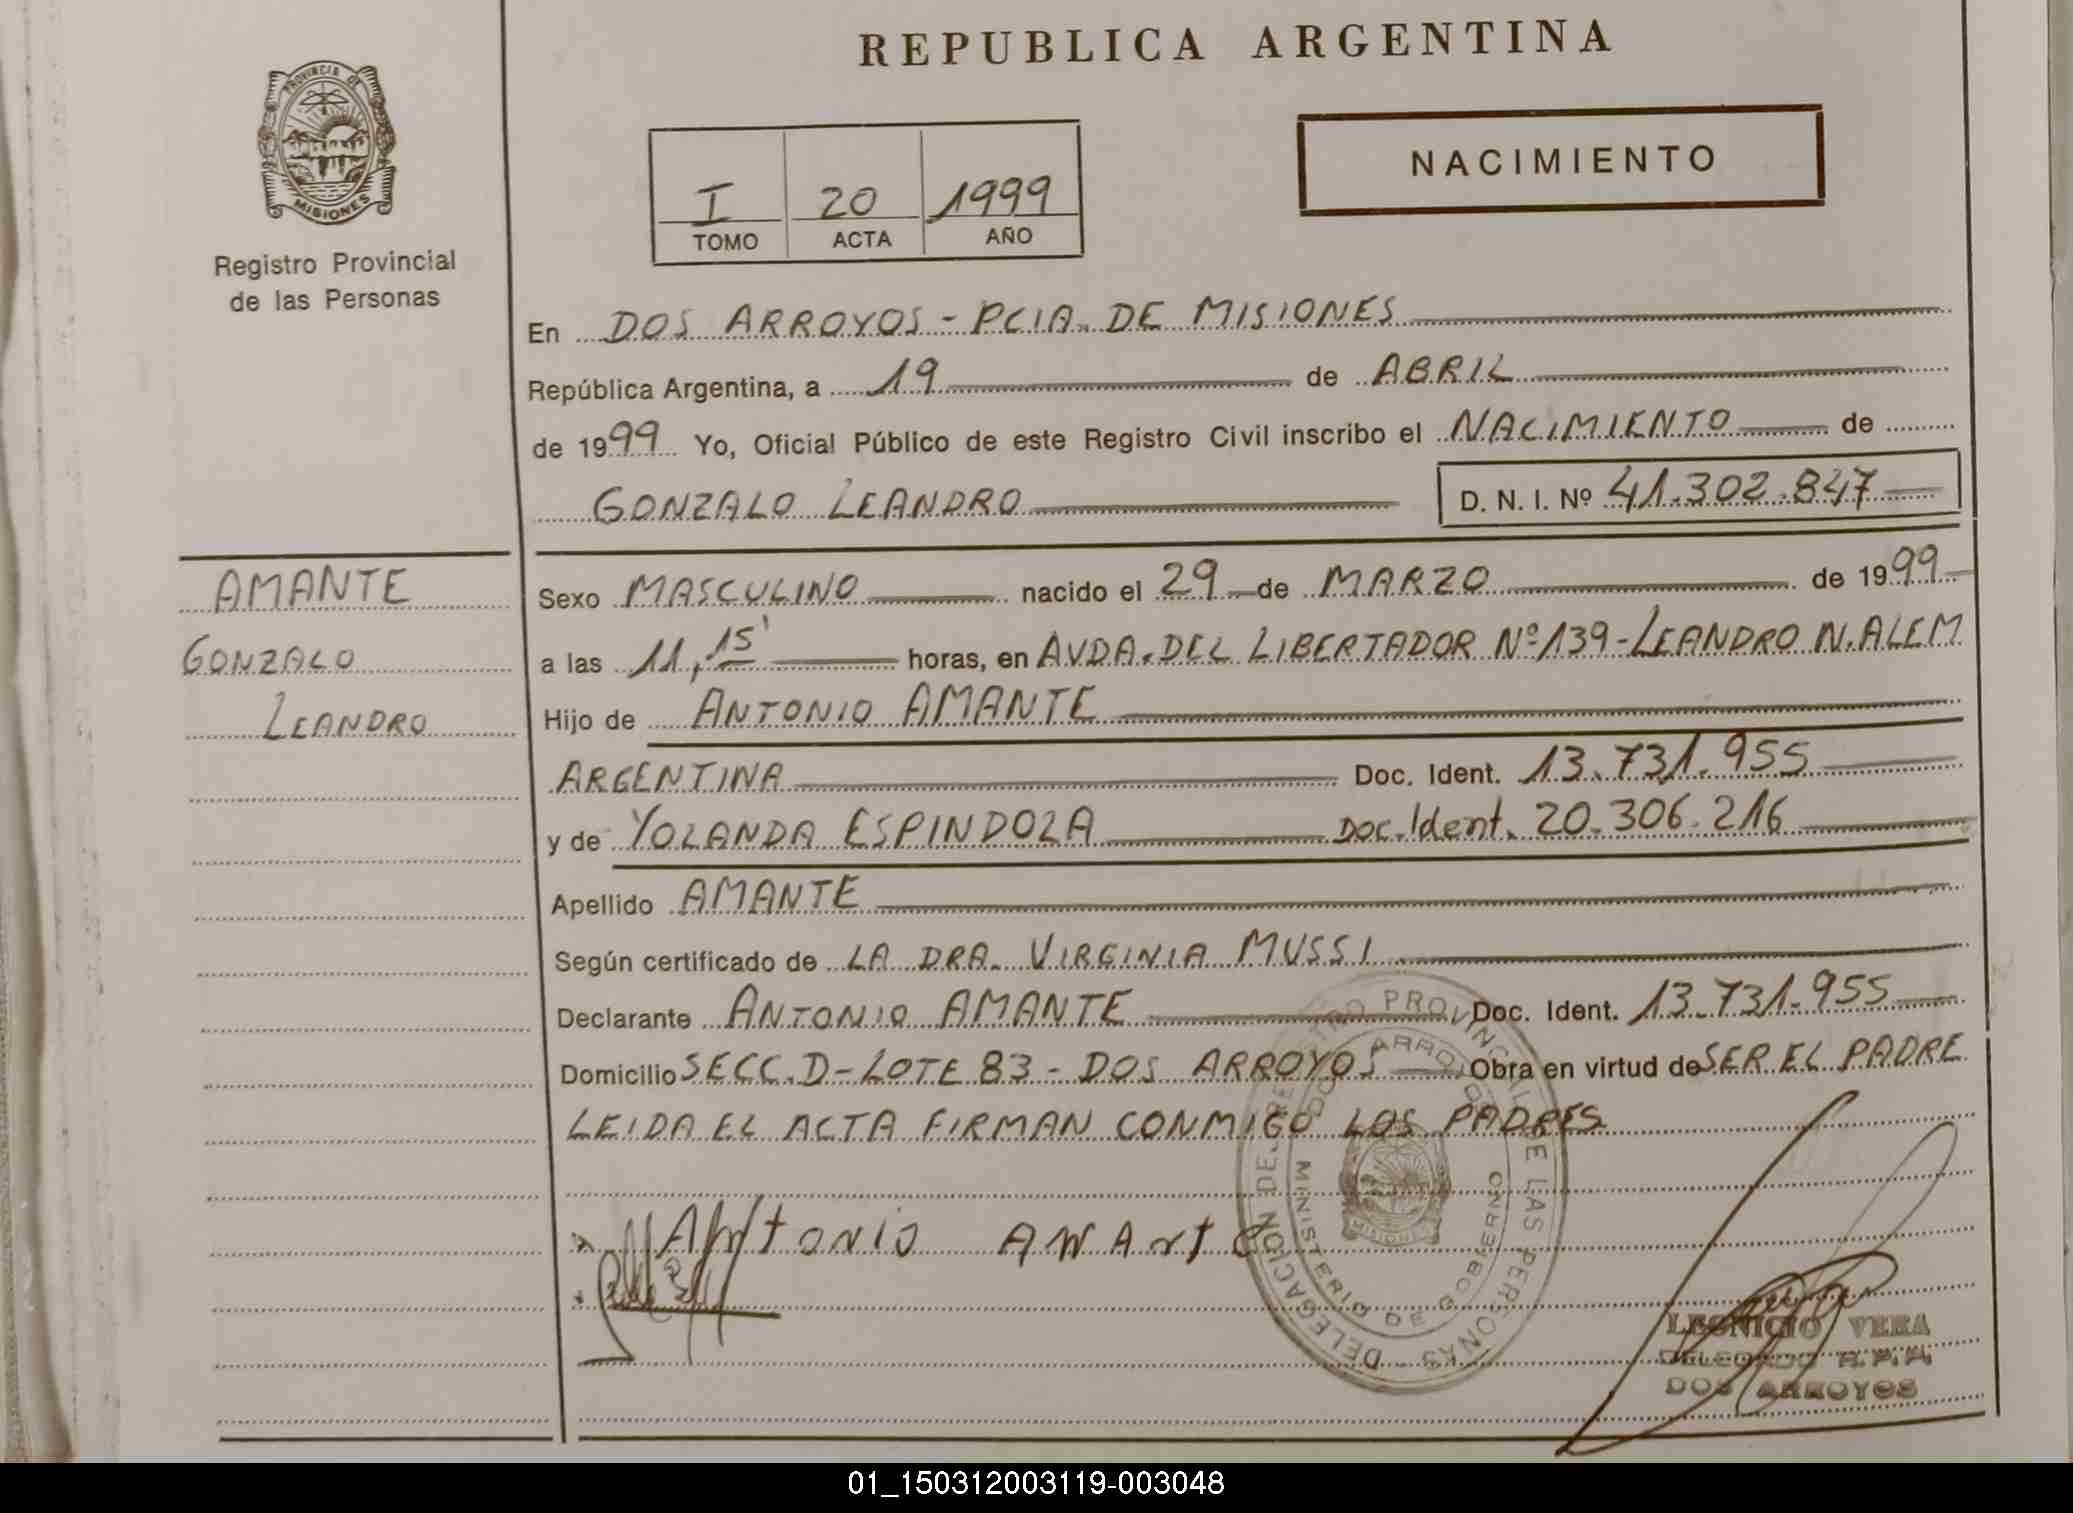 REPUBLICA ARGENTINA
PROVINCIA DE
MISIONES
Registro Provincial
de las Personas
I 20 1999
TOMO ACTA AÑO
NACIMIENTO
En DOS ARROYOS - PCIA. DE MISIONES
República Argentina, a 19 de ABRIL
de 1999 Yo, Oficial Público de este Registro Civil inscribo el NACIMIENTO de
GONZALO LEANDRO D. N. I. Nº 41.302.847
AMANTE
GONZALO
LEANDRO
Sexo MASCULINO nacido el 29 de MARZO de 1999
a las 11,15' horas, en AVDA. DEL LIBERTADOR Nº 139 - LEANDRO N. ALEM
Hijo de ANTONIO AMANTE
ARGENTINA Doc. Ident. 13.731.955
y de YOLANDA ESPINDOLA Doc. Ident. 20.306.216
Apellido AMANTE
Según certificado de LA DRA. VIRGINIA MUSSI
Declarante ANTONIO AMANTE Doc. Ident. 13.731.955
Domicilio SECC. D - LOTE 83 - DOS ARROYOS Obra en virtud de SER EL PADRE
LEIDA EL ACTA FIRMAN CONMIGO LOS PADRES
ANtONiO AMANtE
DELEGACION DE REGISTRO PROVINCIAL DE LAS PERSONAS
DOS ARROYOS
MINISTERIO DE GOBIERNO
MISIONES
LEONICIO VERA
DELEGADO R.P.P.
DOS ARROYOS
01_150312003119-003048